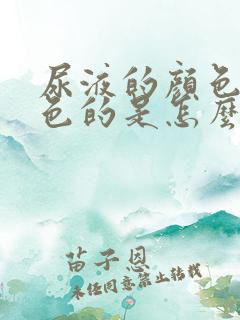 尿液的颜色
色的是怎麼
苗子恩
未经同意禁止转载